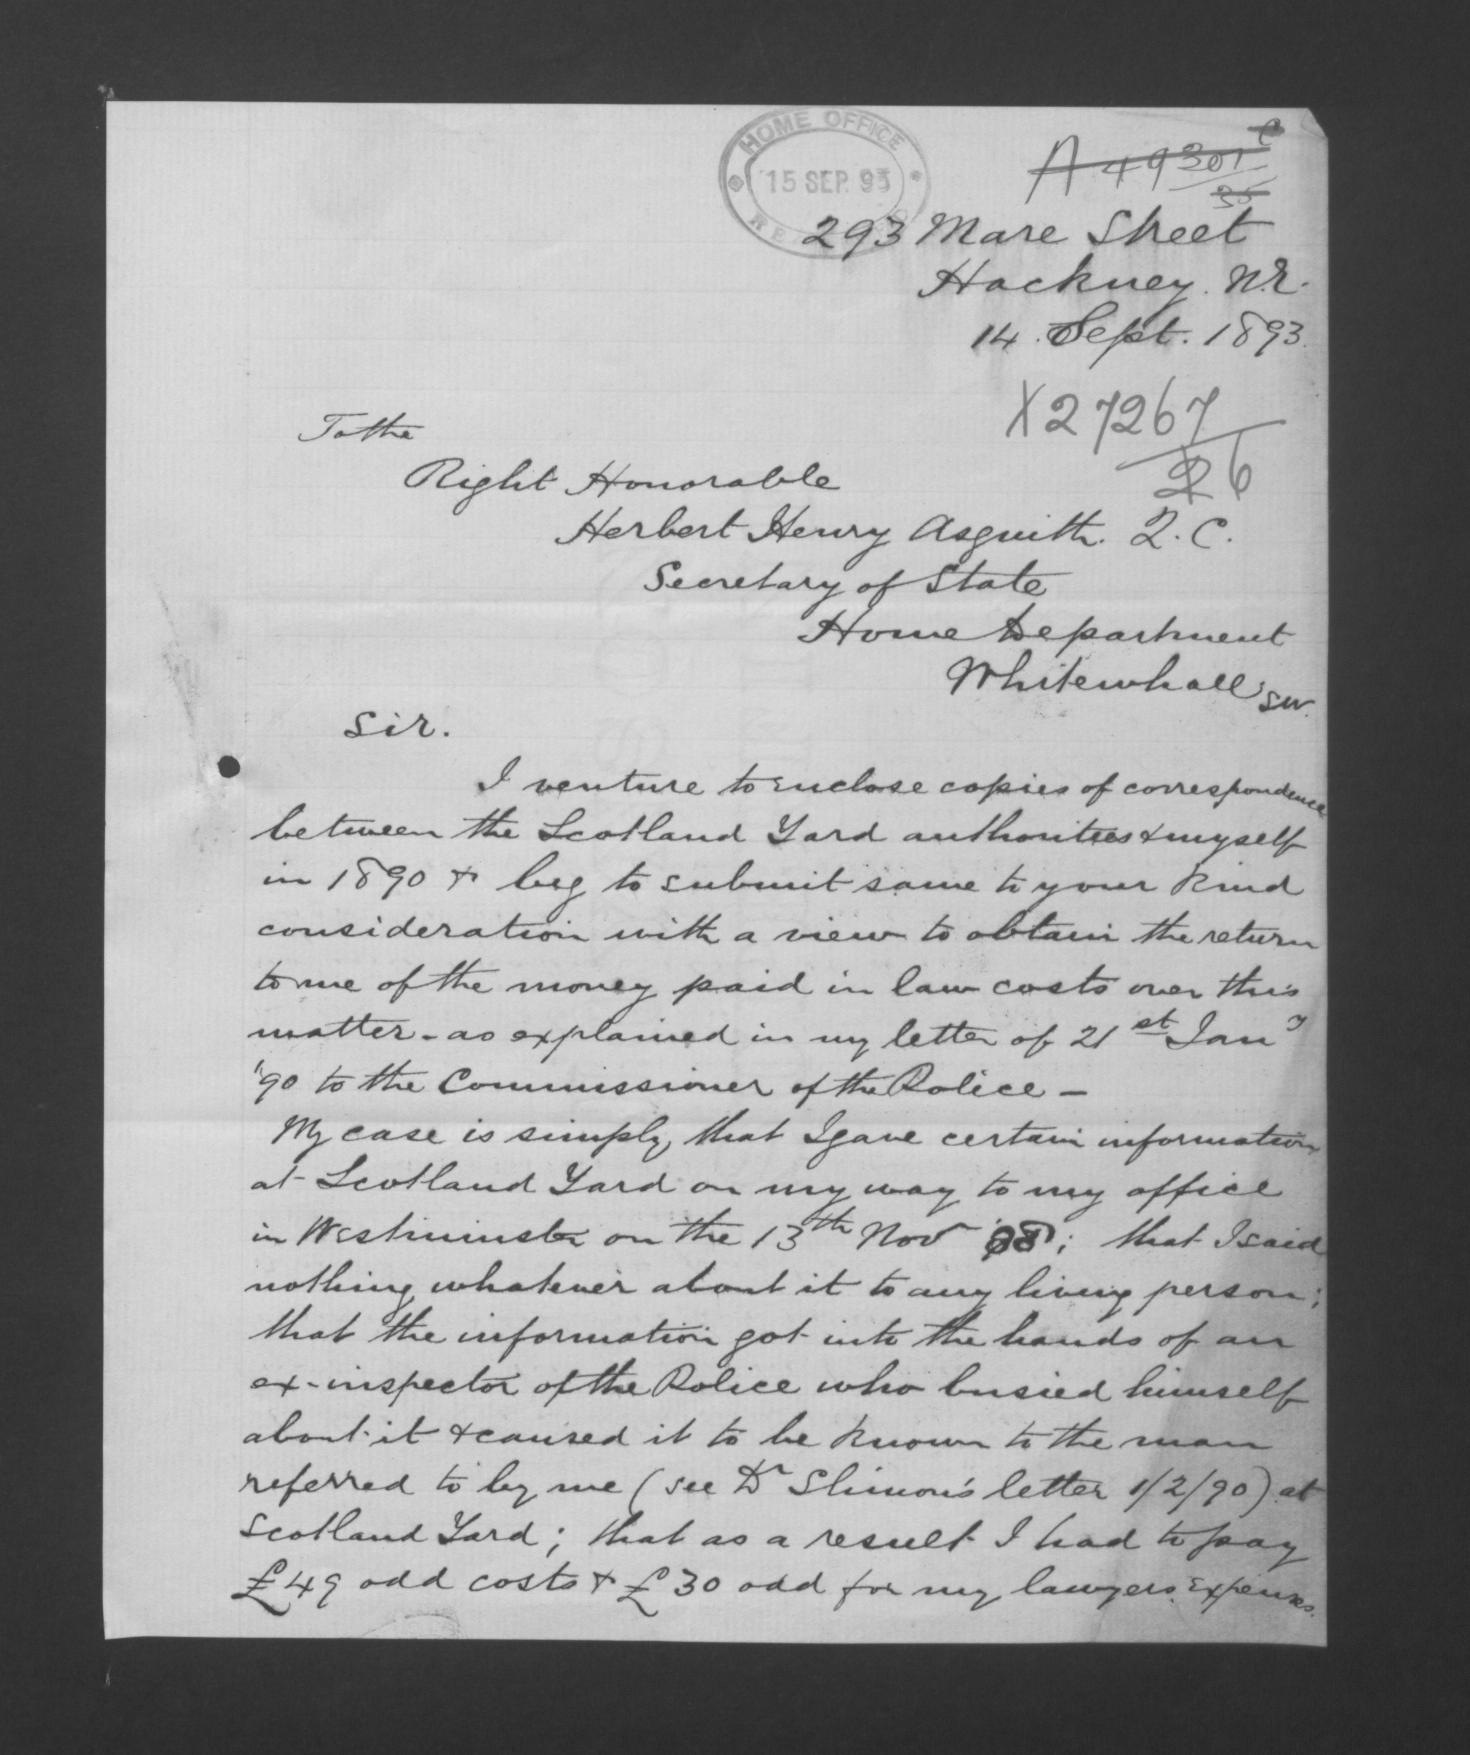 HOME OFFICE
15 SEP. 93
A 49301 C
35
293 Mare Street
Hackney. N.E.
14. Sept. 1893.
X27267
26
To the
Right Honorable
Herbert Henry Asquith. Q.C.
Secretary of State
Home Department
Whitewhall SW.
Sir.
I venture to enclose copies of correspondence
between the Scotland Yard authorities & myself
in 1890 & beg to submit same to your kind
consideration with a view to obtain the return
to me of the money paid in law costs over this
matter - as explained in my letter of 21st Jany
'90 to the Commissioner of the Police -
My case is simply, that I gave certain information
at Scotland Yard on my way to my office
in Westminster on the 13th Nov '88; that I said
nothing whatever about it to any living person;
that the information got into the hands of an
ex-inspector of the Police who busied himself
about it & caused it to be known to the man
referred to by me (see Dr Slimon's letter 1/2/90) at
Scotland Yard; that as a result I had to pay
£49 odd costs & £30 odd for my lawyers expenses.